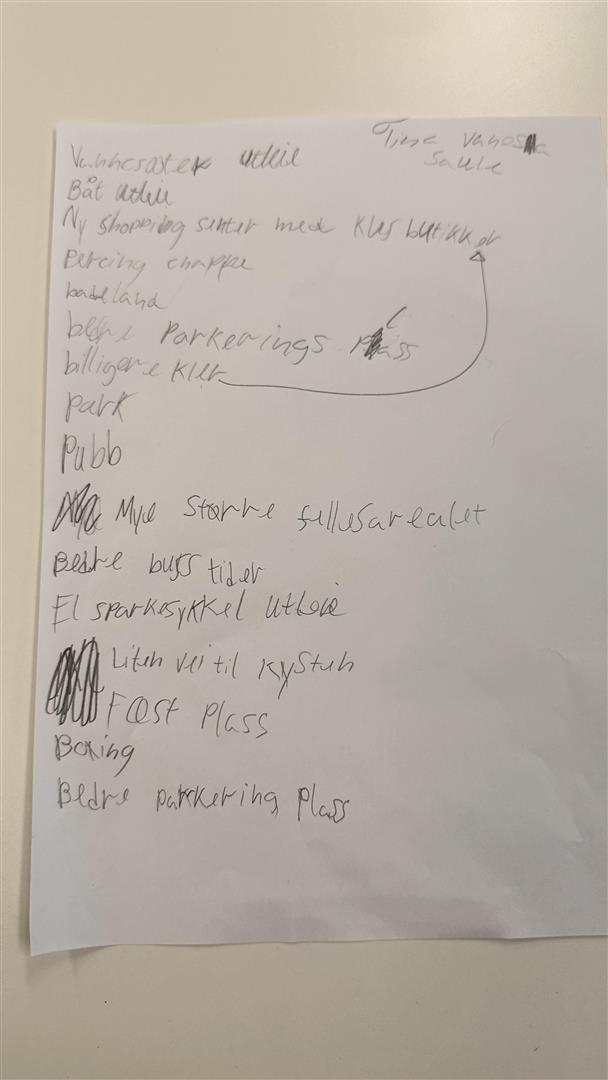 Tina Vanessa
Saule
Vannscooter utleie
Båt utleie
Ny shopping senter med Klesbutikker
Percing chappe
badeland
bedre Parkerings Plass
billigere Kler
park
Pubb
Mye Større fellesarealet
Bedre buss tider
El sparkesykkel utleie
Liten vei til Kysten
Fæst Plass
Boxing
Bedre parkkering Plass